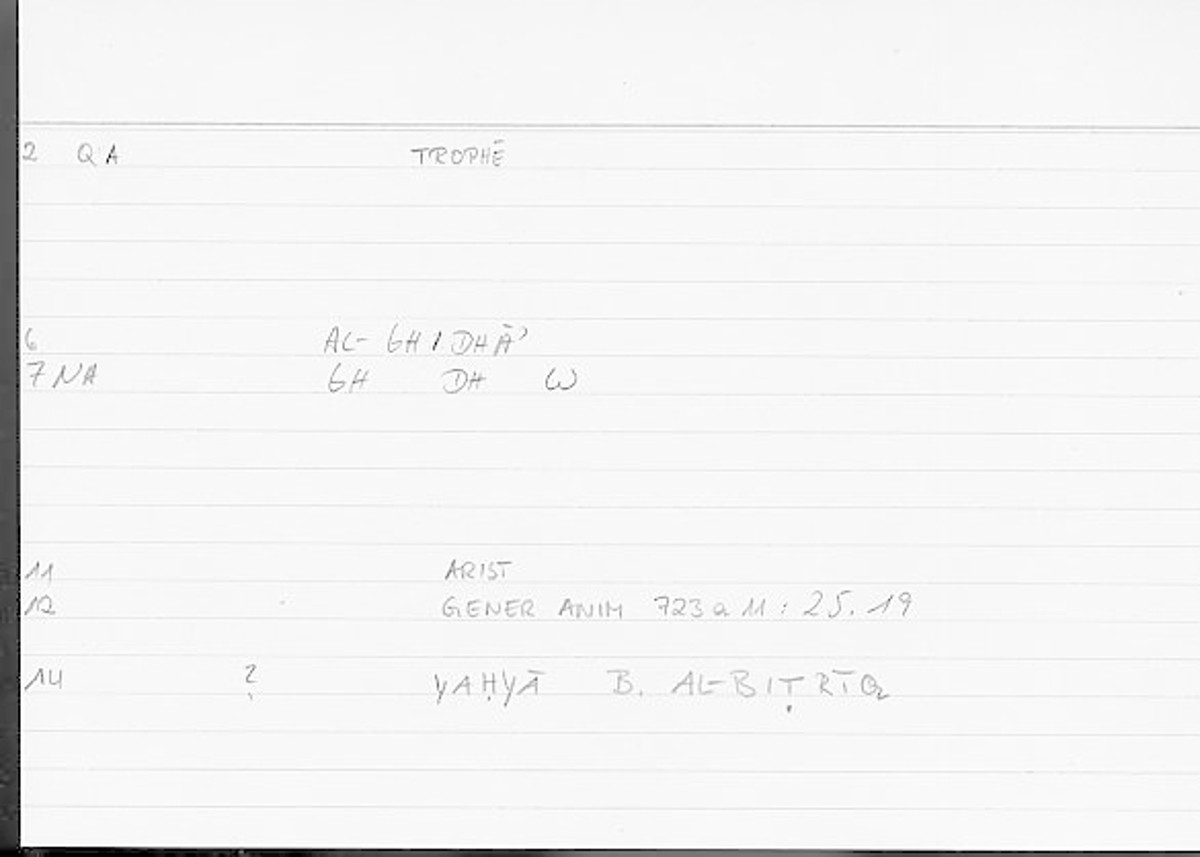 2 QA TROPHĒ
6 AL-GHIDHĀʾ
7 NA GH DH W
11 ARIST
12 GENER ANIM 723 a 11 : 25.19
14 ? YAḤYĀ B. AL-BIṬRĪQ